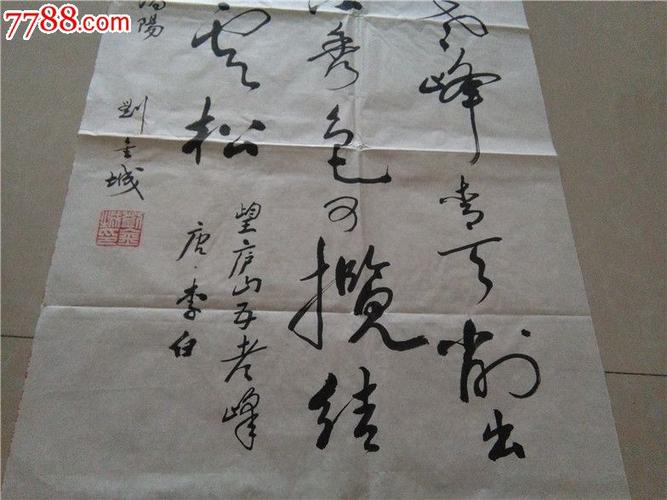 7788.com
老峰青天削出
江秀色可揽结
雲松
望庐山五老峰
唐·李白
陽
劉金城